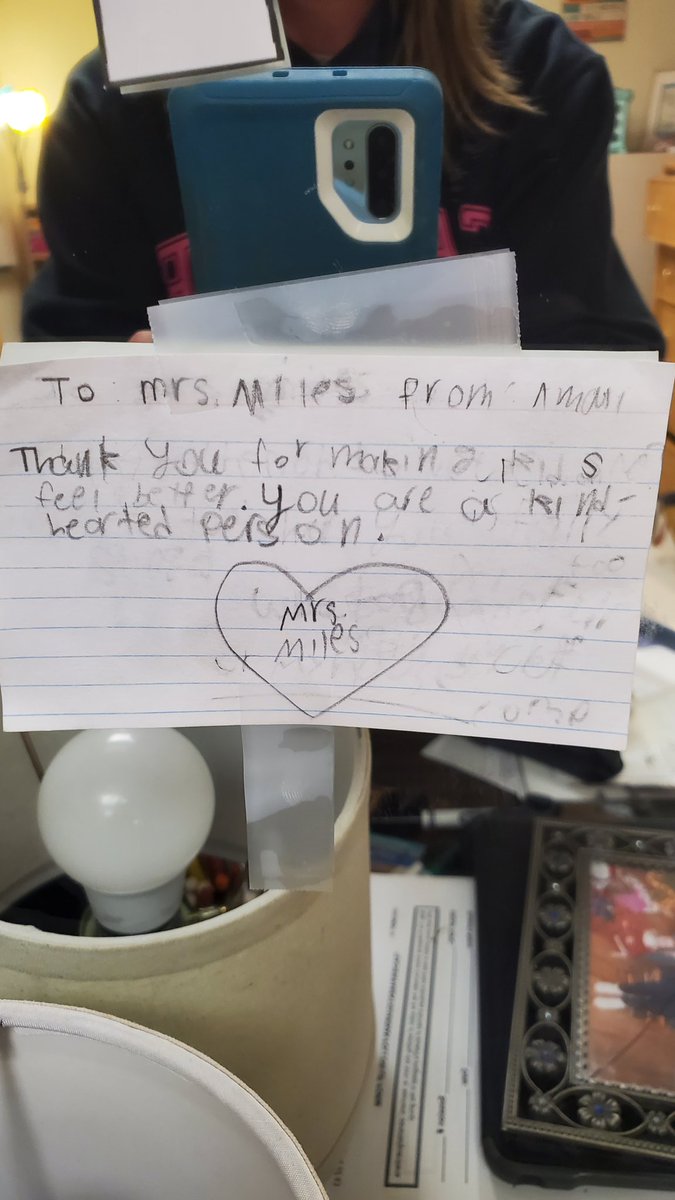 To: mrs. Miles from: Amari
Thank you for making kids
feel better. you are a kind-
hearted person.
mrs.
miles